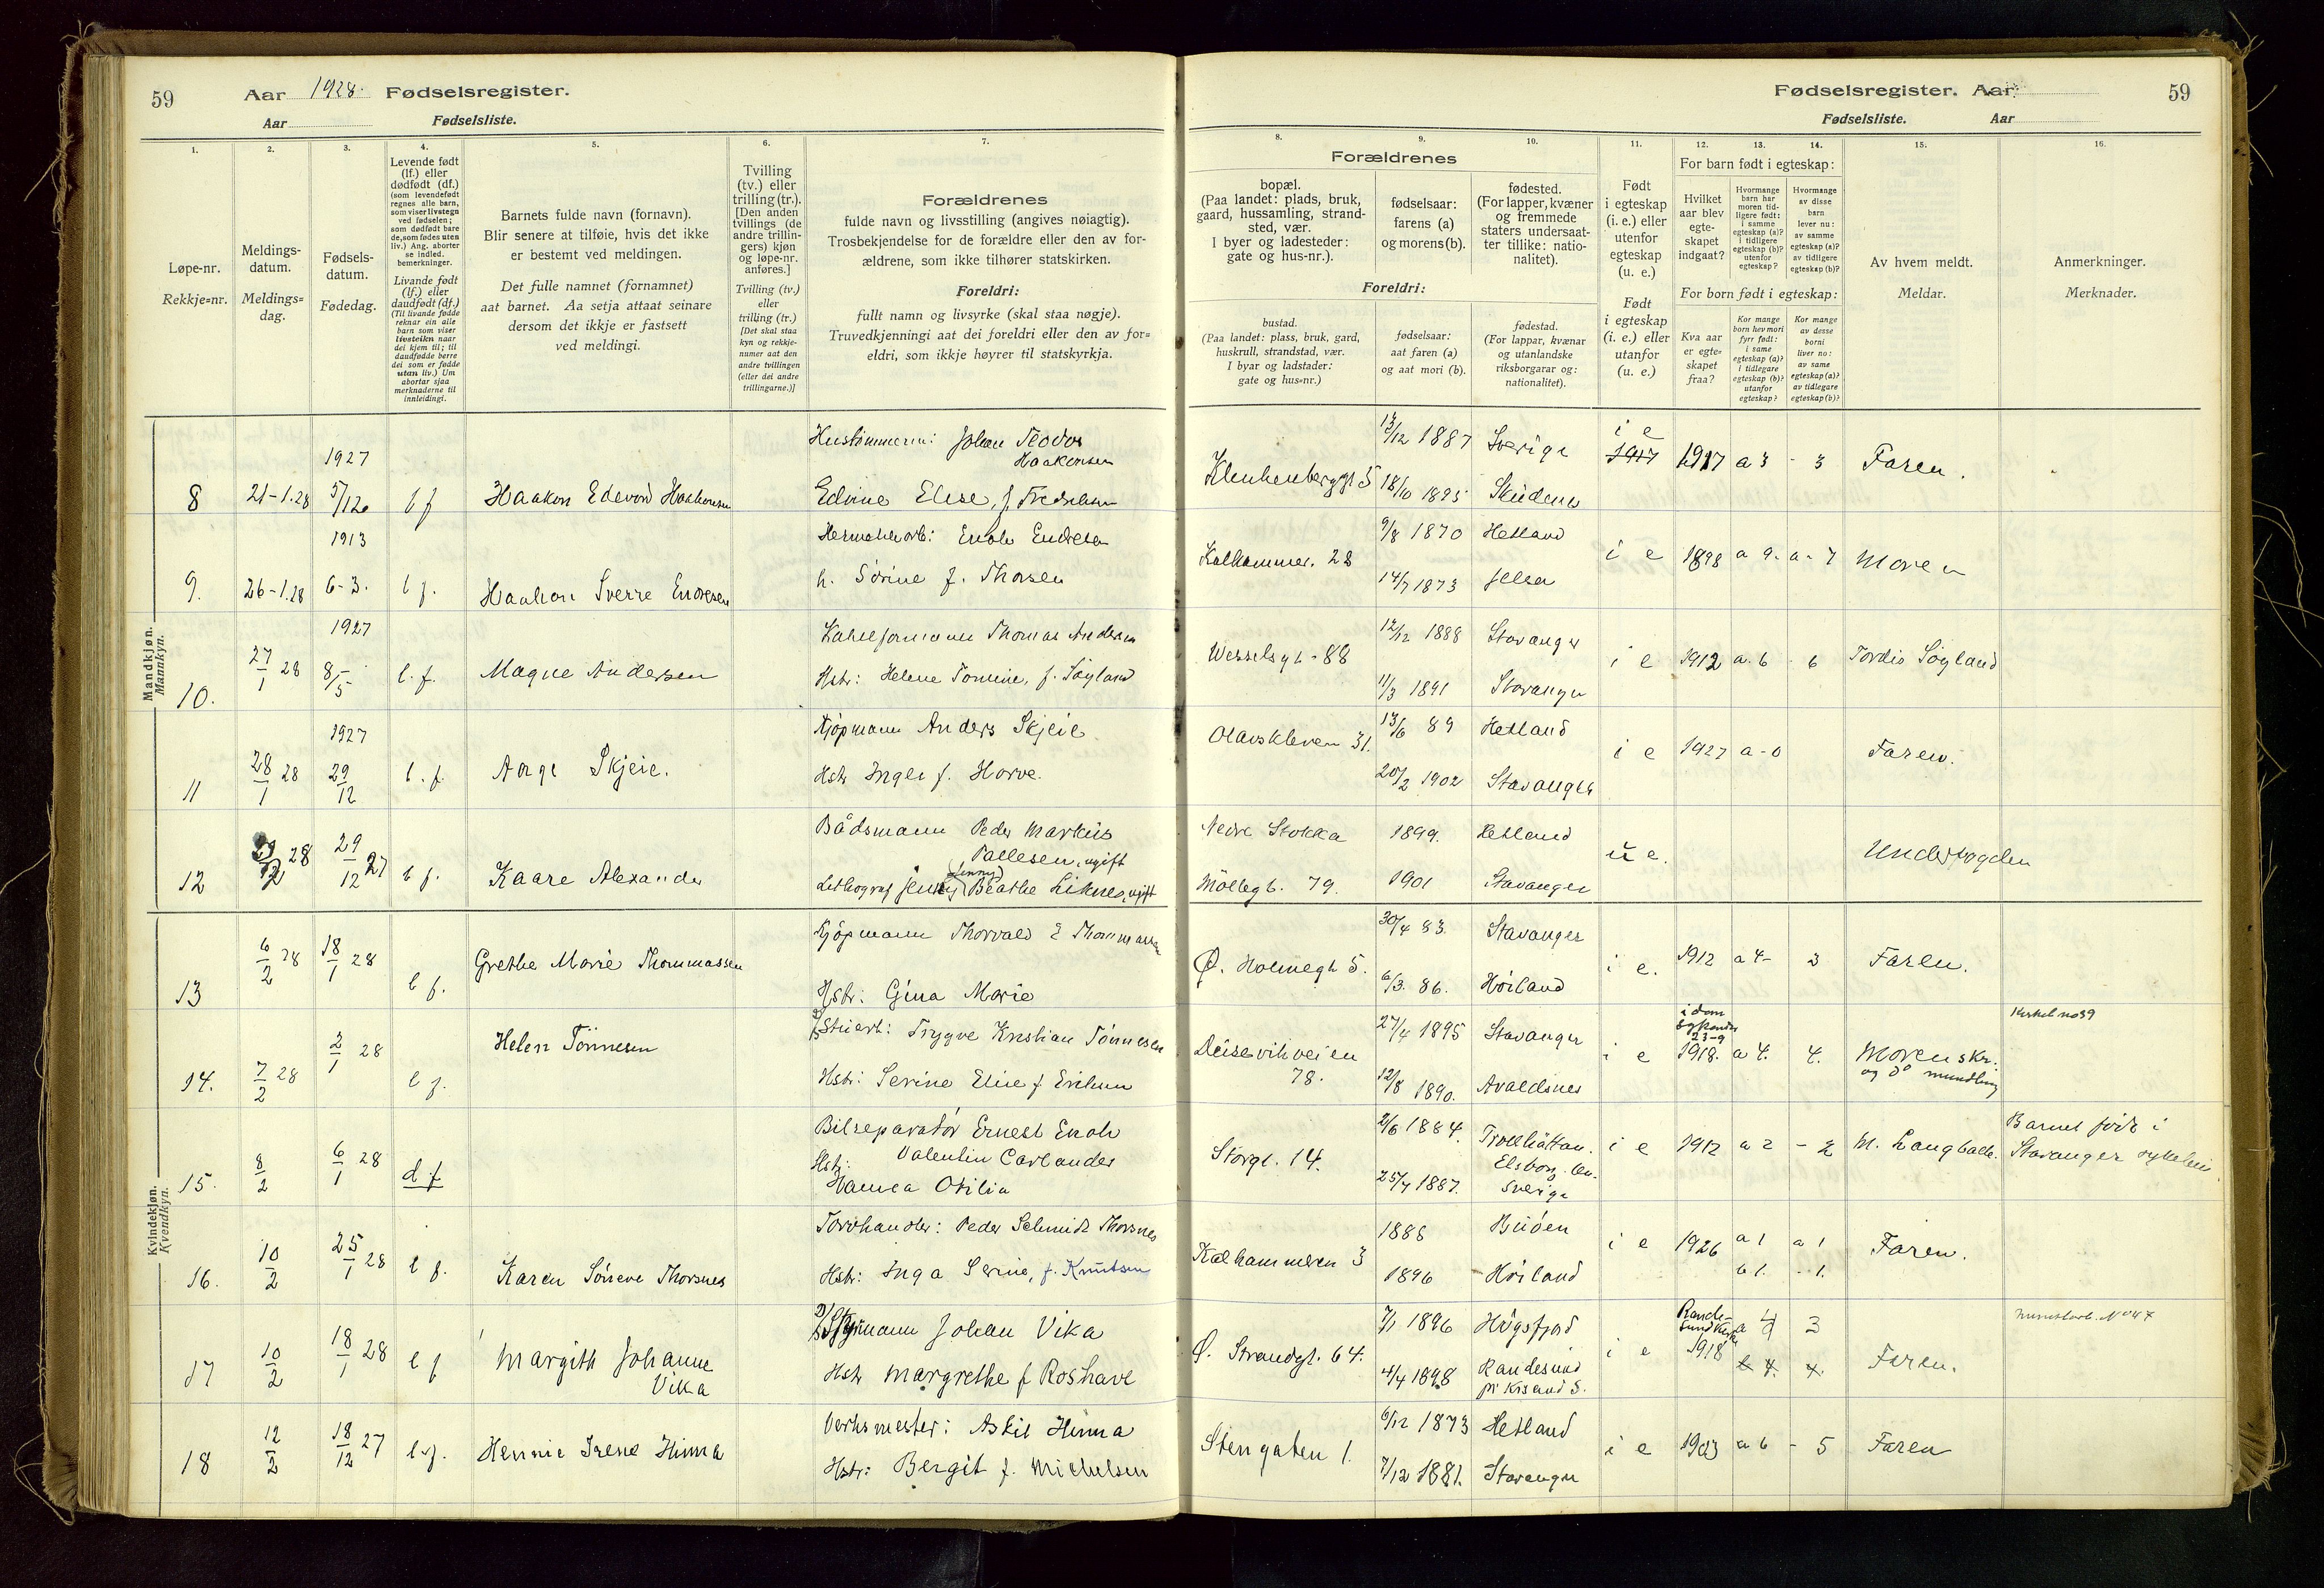 59
Aar 1928. Fødselsregister.
Aar Fødselsliste.
Fødselsregister. Aar
59
Fødselsliste. Aar
1.
Løpe-nr.
Rekkje=nr.
2.
Meldings-
datum.
Meldings=
dag.
3.
Fødsels-
datum.
Fødedag.
4.
Levende født
(lf.) eller
dødfødt (df.)
(som levendefødt
regnes alle barn,
som viser livstegn
ved fødselen;
som dødfødt bare
de, som fødes uten
liv.) Ang. aborter
se indled.
bemerkninger.
Livande født
(lf.) eller
daudfødt (df.)
(Til livande fødde
reknar ein alle
barn som viser
livsteikn naar
dei kjem til; til
daudfødde berre
dei som er fødde
utan liv.) Um
abortar sjaa
merknaderne til
innleidingi.
5.
Barnets fulde navn (fornavn).
Blir senere at tilføie, hvis det ikke
er bestemt ved meldingen.
Det fulle namnet (fornamnet)
aat barnet. Aa setja attaat seinare
dersom det ikkje er fastsett
ved meldingi.
6.
Tvilling
(tv.) eller
trilling (tr.).
[Den anden
tvillings (de
andre trillin-
gers) kjøn
og løpe-nr.
anføres.]
Tvilling (tv.)
eller
trilling (tr.)
[Det skal staa
kyn og rekkje-
numer aat den
andre tvillingen
(eller dei andre
trillingarne.)]
7.
Forældrenes
fulde navn og livsstilling (angives nøiagtig).
Trosbekjendelse for de forældre eller den av for-
ældrene, som ikke tilhører statskirken.
Foreldri:
fullt namn og livsyrke (skal staa nøgje).
Truvedkjenningi aat dei foreldri eller den av for=
eldri, som ikkje høyrer til statskyrkja.
Forældrenes
8.
bopæl.
(Paa landet: plads, bruk,
gaard, hussamling, strand-
sted, vær.
I byer og ladesteder:
gate og hus-nr.).
Foreldri:
bustad.
(Paa landet: plass, bruk, gard,
huskrull, strandstad, vær.
I byar og ladstader:
gate og hus=nr.)
9.
fødselsaar:
farens (a)
og morens (b).
fødselsaar:
aat faren (a)
og aat mori (b).
10.
fødested.
(For lapper, kvæner
og fremmede
staters undersaat-
ter tillike: natio-
nalitet).
fødestad.
(For lappar, kvænar
og utanlandske
riksborgarar og:
nationalitet).
11.
Født
i egteskap
(i. e.) eller
utenfor
egteskap
(u. e.)
Født
i egteskap
(i. e.) eller
utanfor
(u. e.)
For barn født i egteskap:
12.
Hvilket
aar blev
egte-
skapet
indgaat?
13.
Hvormange
barn har
moren tid-
ligere født:
i samme
egteskap (a)?
i tidligere
egteskap (b)?
utenfor
egteskap?
14.
Hvormange
av disse
barn
lever nu:
av samme
egteskap (a)?
av tidligere
egteskap (b)?
For born født i egteskap:
Kva aar
er egte-
skapet
fraa?
Kor mange
born hev mori
fyrr født:
i same
egteskap (a)?
i tidlegare
egteskap (b)?
utanfor
egteskap?
Kor mange
av desse
borni
liver no:
av same
egteskap (a)?
av tidlegare
egteskap (b)?
15.
Av hvem meldt.
Meldar.
16.
Anmerkninger.
Merknader.
Mandkjøn.
Mannkyn.
8 21-1.28 1927 5/12 l f Haakon Edvard Haakonsen
Johan Teodor
Haakonsen
Edvine Elise, f. Fredriksen
13/12 1887 Sverige
18/10 1895 Skudenes
i e 1917 1917 a 3 - 3 Faren.
9. 26-1.28 1913 6-3. l f. Haakon Sverre Endresen
Enok Endresen
h. Sörine f. Thorsen
Kalhammer. 28
9/8 1870 Hetland
14/7 1873 Jelsa
i e 1898 a 9. a - 7 Moren
10. 27/1 28 1927 8/5 l. f. Magne Andersen
Thomas Andersen
Hstr: Helene Tomine, f. Søyland
Wesselsgt-88
12/12 1888 Stavanger
11/3 1891 Stavanger
i e 1912 a. 6 - 6 Tordis Søyland
11 28/1 28 1927 29/12 l. f. Aage Skjeie.
Kjøpmann Anders Skjeie
Hstr Inger f. Horve.
Olavskleven 31.
13/6 89 Hetland
20/2 1902 Stavanger
i e 1927 a-0 Faren.
12 28 29/12 27 l f. Kaare Alexander
Bådsmann Peder Markus
Pallesen, ugift
Jenny Beathe Liknes, ugift
Nedre Stokka 1899. Hetland
Möllegt. 79. 1901 Stavanger
u e. Underfogden
Kvindekjøn.
Kvendkyn.
13 6/2 28 18/1 28 l f. Grethe Marie Thommassen
Kjøpmann Thorvald E Thommassen
Hstr: Gina Marie
Ø. Holmegt 5.
30/4 83. Stavanger
6/3. 86. Höiland
i e. 1912 a 4- 3 Faren.
14. 7/2 28 2/1 28 l f. Helen Tönnesen
Stuert: Trygve Kristian Tönnesen
Hstr: Serine Elise f Eriksen
78.
27/4 1895 Stavanger
12/8 1890. Avaldsnes
i e 23-9 1918. a 4. 4. Moren skr.
og do mundtlig
15. 8/2 6/1 28 d f
Bilreparatör Ernest Enok
Valentin Carlander
Hstr:
Hanna Otilia
Storgt. 14.
2/6 1884. Trollhättan.
Elsborg. län.
25/7 1887. Sverige
i e 1912 a 2 - 2 M. Langbakk.
Barnet født i
Stavanger
16. 10/2 25/1 28 l f. Karen Söneve Thorsnes
Torvhandler: Peder Schmidt Thorsnes
Hstr: Inga Serine, f. Knutsen
Kalhammeren 3
1888
1896 Höiland
i e 1926 a 1 a 1
b 1. - 1.
Faren.
17 10/2 18/1 28 l f Margith Johanne
Vika
Johan Vika
Hstr Margrethe f Roshave
Ø. Strandgt. 64.
7/1 1896 Högsfjord
4/4 1898 Randesund
pr Krsand S.
i e 1918 a 4 3
Faren.
18 12/2 18/12 27 l f. Hennie Irene Hinna
Verksmester: Askil Hinna
Hstr: Bergit f. Michelsen
Stengaten 1.
6/12 1873 Hetland
7/12 1881. Stavanger
i e 1903 a 6 - 5 Faren